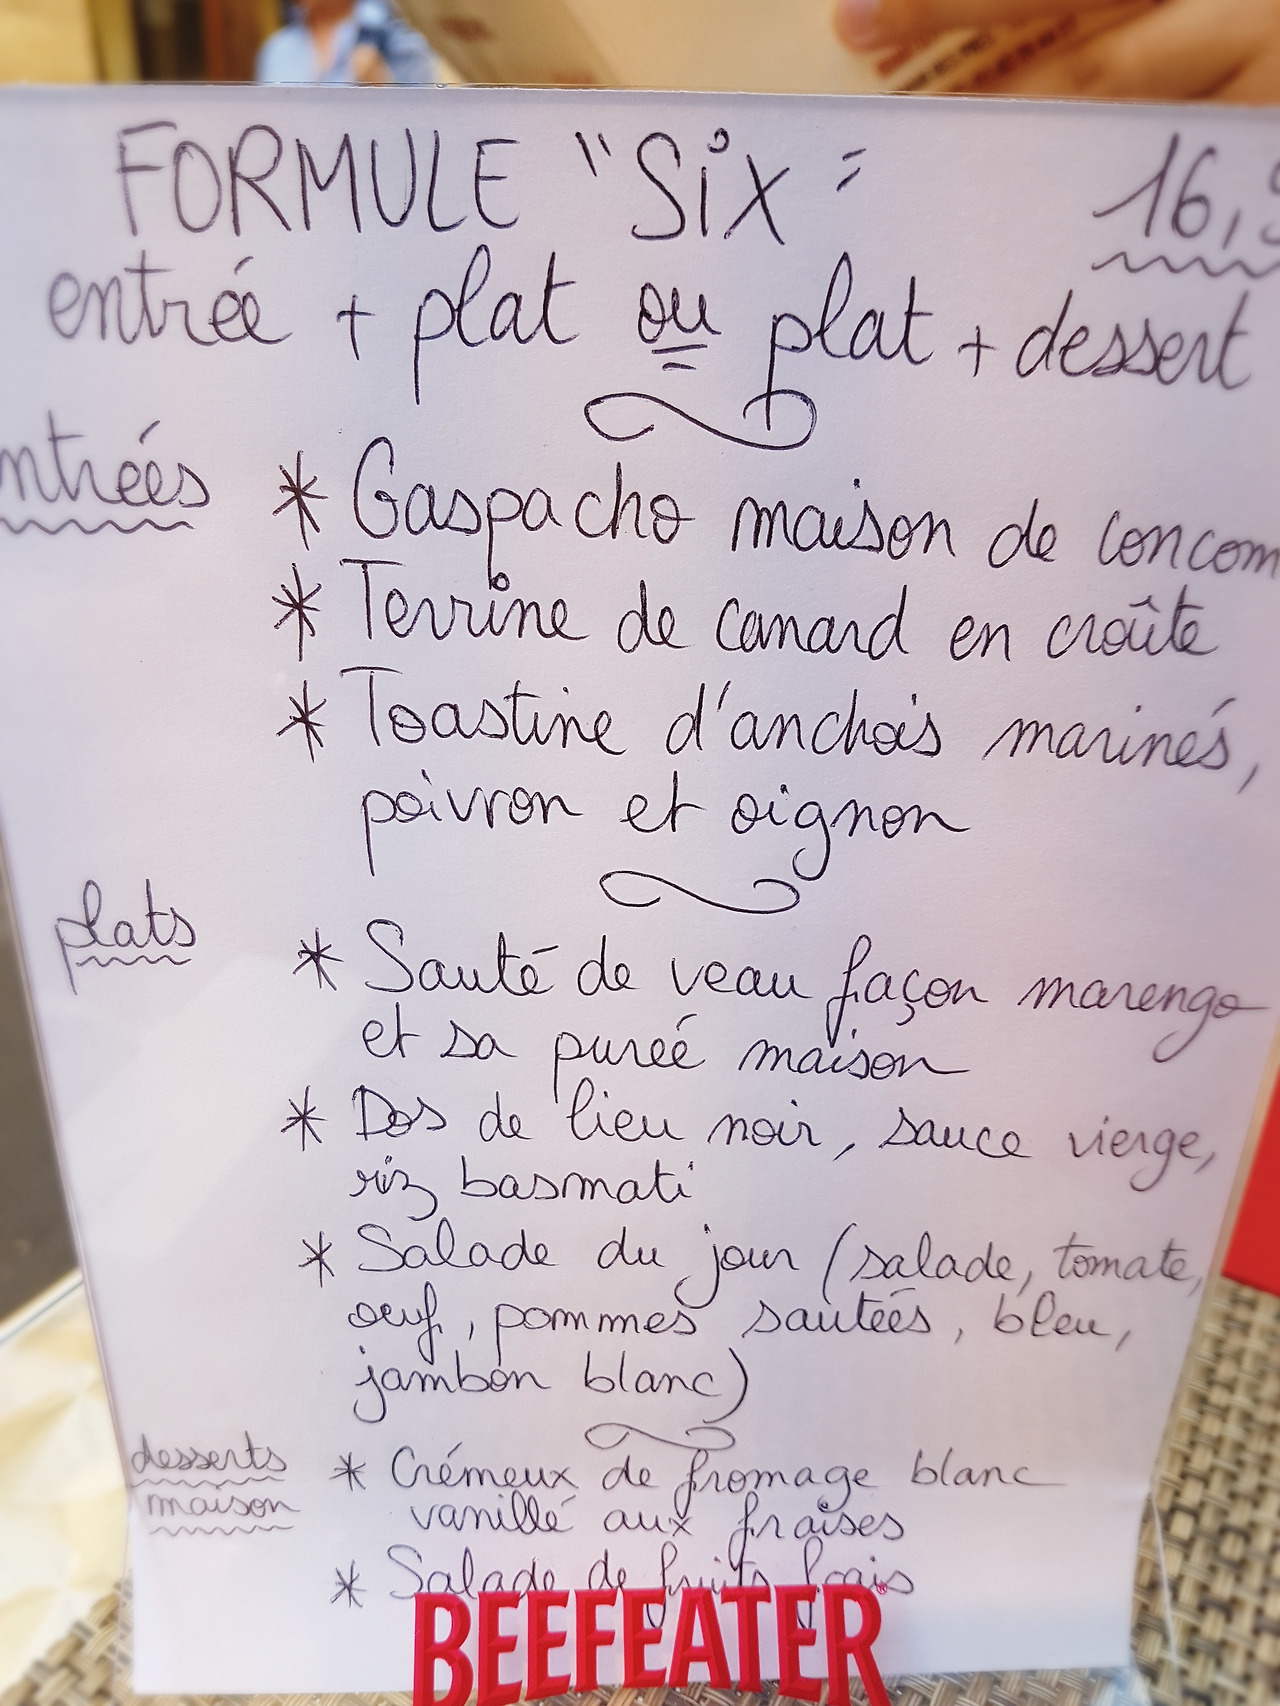 FORMULE "SiX"
entrée + plat ou plat + dessert
* Gaspacho maison de
* Terrine de canard en croûte
* Toastine d'anchois marinés,
poivron et oignon
plats
* Sauté de veau façon marengo
et sa purée maison
* Dos de lieu noir, sauce vierge,
riz basmati
* Salade du jour (salade, tomate,
œuf, pommes sautées, bleu,
jambon blanc)
desserts
maison
* Crémeux de fromage blanc
vanillé aux fraises
* Salade de fruits frais
BEEFEATER